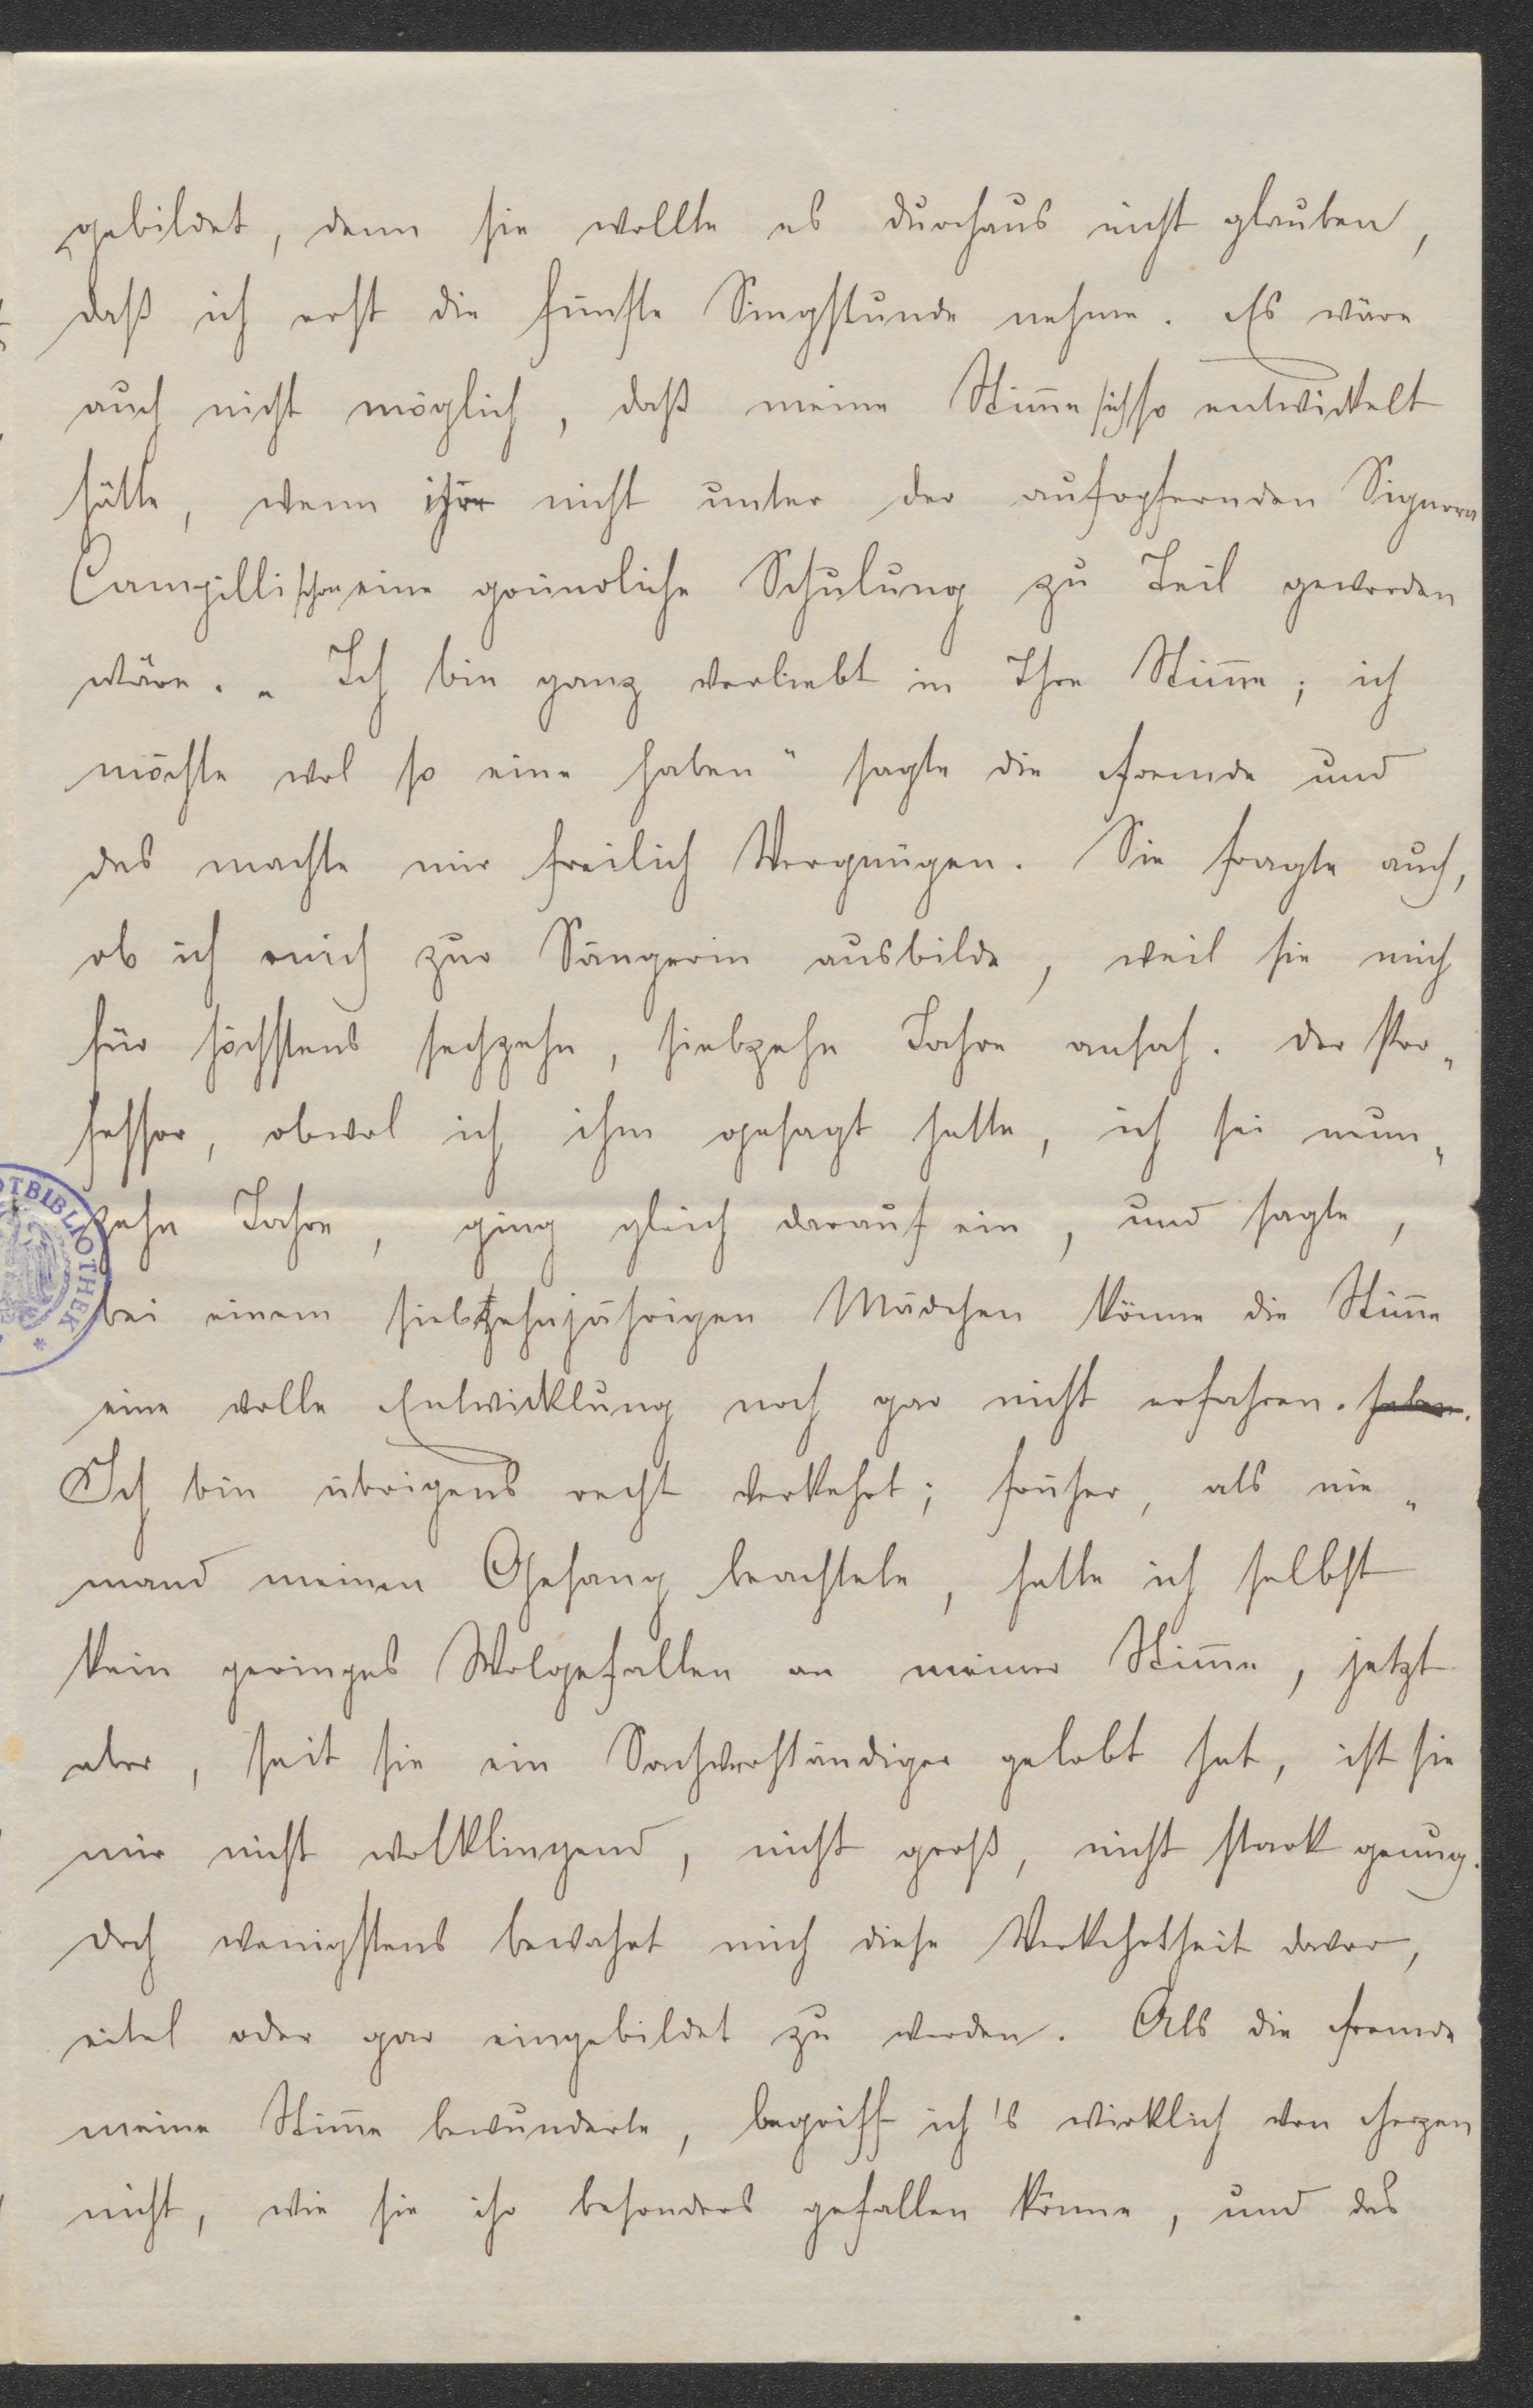 gebildet, denn sie wollte es durchaus nicht glauben,
daß ich erst die fünfte Singstunde nehme. Es wäre
auch nicht möglich, daß meine Stim̅e sich so entwickelt
hätte, wenn ihr nicht unter der aufopfernden Signora
Campilli schon eine gründliche Schulung zu Teil geworden
wäre. „Ich bin ganz verliebt in Ihre Stim̅e; ich
möchte wol so eine haben“ sagte die Fremde und
das machte mir freilich Vergnügen. Sie fragte auch,
ob ich mich zur Sängerin ausbilde, weil sie mich
für höchstens sechzehn, siebzehn Jahre ansah. Der Pro„
fessor, obwol ich ihm gesagt hatte, ich sei neun„
zehn Jahre, ging gleich darauf ein, und sagte,
bei einem siebzehnjährigen Mädchen könne die Stim̅e
eine volle Entwicklung noch gar nicht erfahren. haben.
Ich bin übrigens recht verkehrt; früher, als nie„
mand meinen Gesang beachtete, hatte ich selbst
kein geringes Wolgefallen an meiner Stim̅e, jetzt
aber, seit sie ein Sachverständiger gelobt hat, ist sie
mir nicht wolklingend, nicht groß, nicht stark genug.
Doch wenigstens bewahrt mich diese Verkehrtheit davor,
eitel oder gar eingebildet zu werden. Als die Fremde
meine Stim̅e bewunderte, begriff ich's wirklich von Herzen
nicht, wie sie ihr besonders gefallen könne, und das
TBIBLIOTHEK